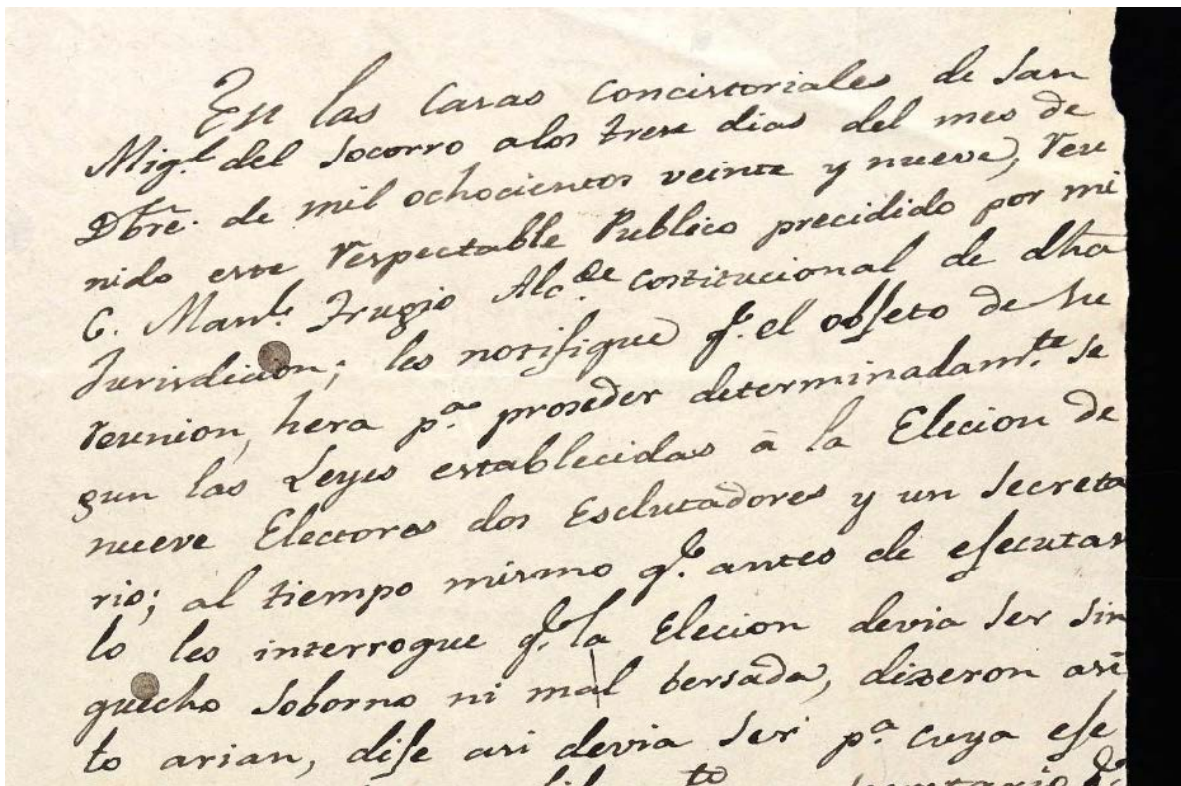 En las Casas Concistoriales de San
Mig.l del Socorro a los trese dias del mes de
Dbre. de mil ochocientos veinte y nueve, reu
nido este respectable Publico precidido por mi
C. Man.l Trugio Alc.de costitucional de dha
Jurisdicion; les notifique q.e el objeto de su
reunion, hera p.a proseder determinadam.te se
gun las Leyes establecidas á la Elecion de
nueve Electores dos Esclutadores y un Secreta
rio; al tiempo mismo q.e antes de ejecutar
lo les interrogue q.e la Elecion devia ser sin
guecho soborno ni mal bersada, dixeron asi
lo arian, dije asi devia ser p.a cuya eje